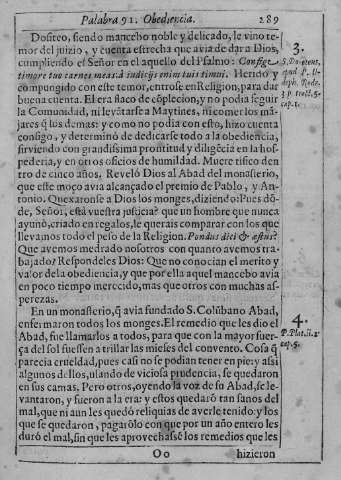 Palabra 91. Obediencia. 289
Dositeo, siendo mancebo noble y delicado, le vino te-
mor del juizio, y cuenta estrecha que avia de dar a Dios,
cumpliendo el Señor en el aquello del Psalmo: Confige
timore tuo carnes meas: à iudicijs enim tuis timui. Herido y
compungido con este temor, entrose en Religion, para dar
buena cuenta. El era flaco de cõplecion, y no podia seguir
la Comunidad, ni levãtarse a Maytines, ni comer los mã-
jares q̃ los demas: y como no podia con esto, hizo cuenta
consigo, y determinò de dedicarse todo a la obediencia,
sirviendo con grandissima prontitud y diligẽcia en la hos-
pederia, y en otros oficios de humildad. Muere tisico den
tro de cinco años. Revelò Dios al Abad del monasterio,
que este moço avia alcançado el premio de Pablo, y An-
tonio. Quexaronse a Dios los monges, diziendo: Pues dõ-
de, Señor, està vuestra justicia? que un hombre que nunca
ayunò, criado en regalos, le querais comparar con los que
llevamos todo el peso de la Religion. Pondus diei & æstus?
Que avemos medrado nosotros con quanto avemos tra-
bajado? Respondeles Dios: Que no conocian el merito y
valor de la obediencia, y que por ella aquel mancebo avia
en poco tiempo merecido, mas que otros con muchas as-
perezas.
En un monasterio, q̃ avia fundado S. Colũbano Abad,
enfermaron todos los monges. El remedio que les dio el
Abad, fue llamarlos a todos, para que con la mayor fuer-
ça del sol fuessen a trillar las mieses del convento. Cosa q̃
parecia crueldad, pues casi no se podian tener en pie: y assi
algunos dellos, usando de viciosa prudencia, se quedaron
en sus camas. Pero otros, oyendo la voz de su Abad, se le-
vantaron, y fueron a la era: y estos quedarõ tan sanos del
mal, que ni aun les quedò reliquias de averle tenido: y los
que se quedaron, pagarõlo con que por un año entero les
durò el mal, sin que les aprovechassẽ los remedios que les
Oo hizieron
3.
4.
cap. 5.